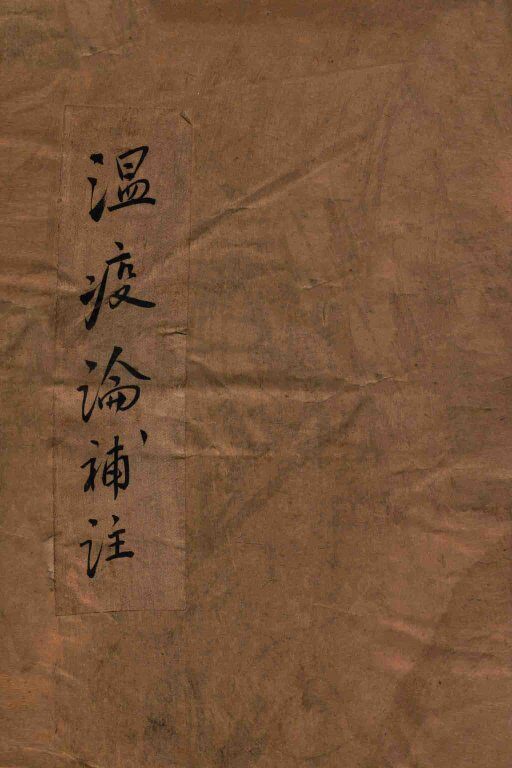 温疫論補註